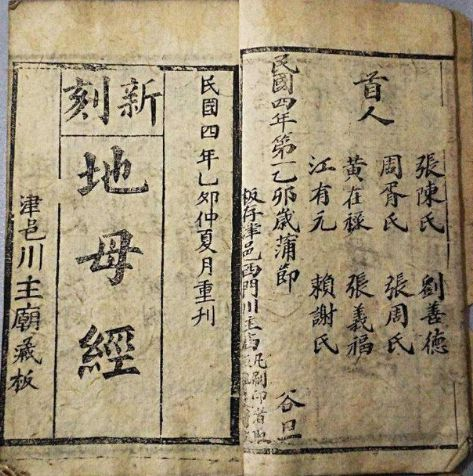 首人
張陳氏 劉善德
周胥氏 張周氏
黃在祿 張義福
江有元 賴謝氏
民國四年第乙卯歲蒲節 谷旦
板存津邑西門川主廟 凡刷印者
民國四年乙卯仲夏月重刊
新刻
地母經
津邑川主廟藏板